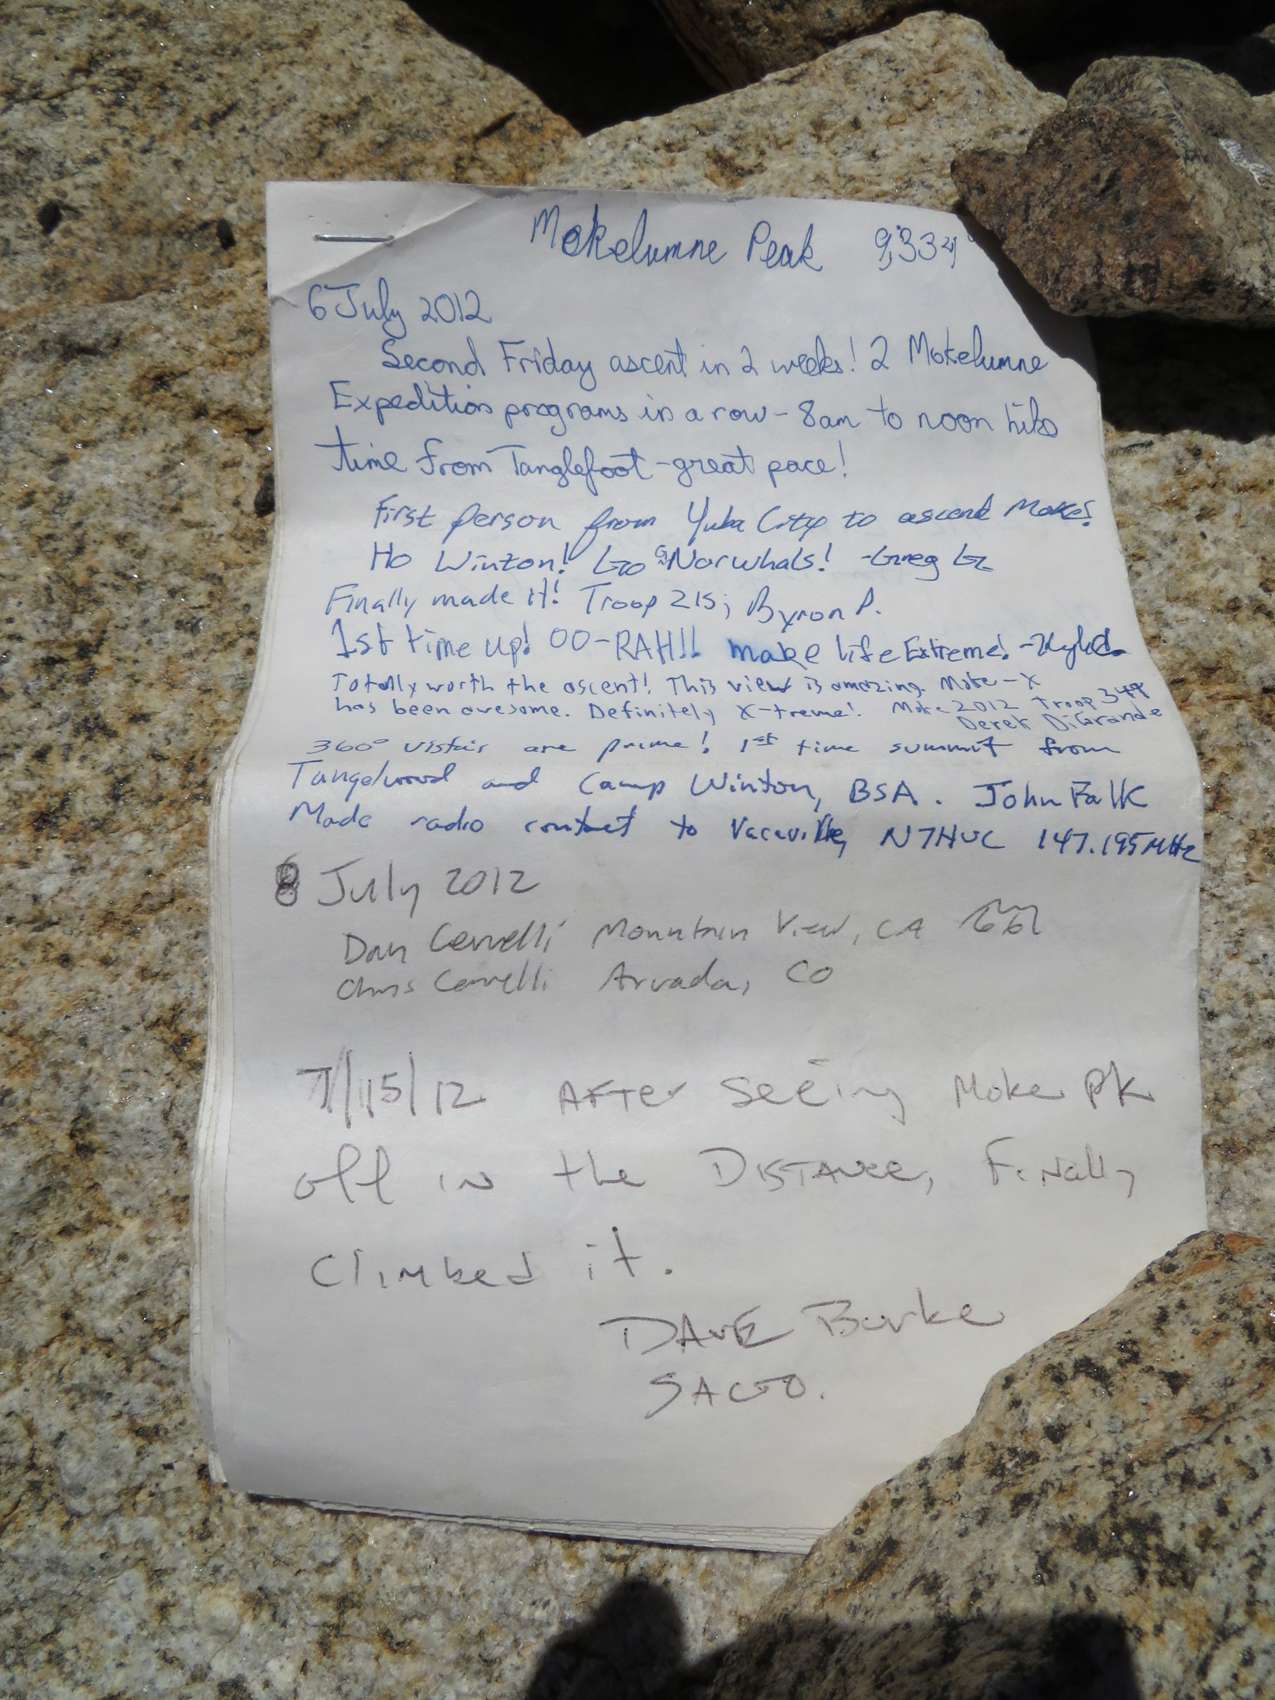 Mokelumne Peak 9,334'
6 July 2012
Second Friday ascent in 2 weeks! 2 Mokelumne
Expedition programs in a row - 8am to noon hike
time from Tanglefoot - great pace!
First person from Yuba City to ascend Moke!
Ho Winton! Go Norwhals! - Greg G
Finally made it! Troop 215; Byron P.
1st time up! OO-RAH!! make life Extreme! -
Totally worth the ascent! This view is amazing. Moke-X
has been awesome. Definitely X-treme! Moke 2012 Troop 349
Derek DiGrande
360° vistas are prime! 1st time summit from
Tangelwood and Camp Winton, BSA. John Falk
Made radio contact to Vacaville, N7HUC 147.195MHz
8 July 2012
Dan Cervelli Mountain View, CA
Chris Cervelli Arvada, CO
7/15/12 After seeing Moke Pk
off in the Distance, Finally
Climbed it.
Dave Burke
SACTO.